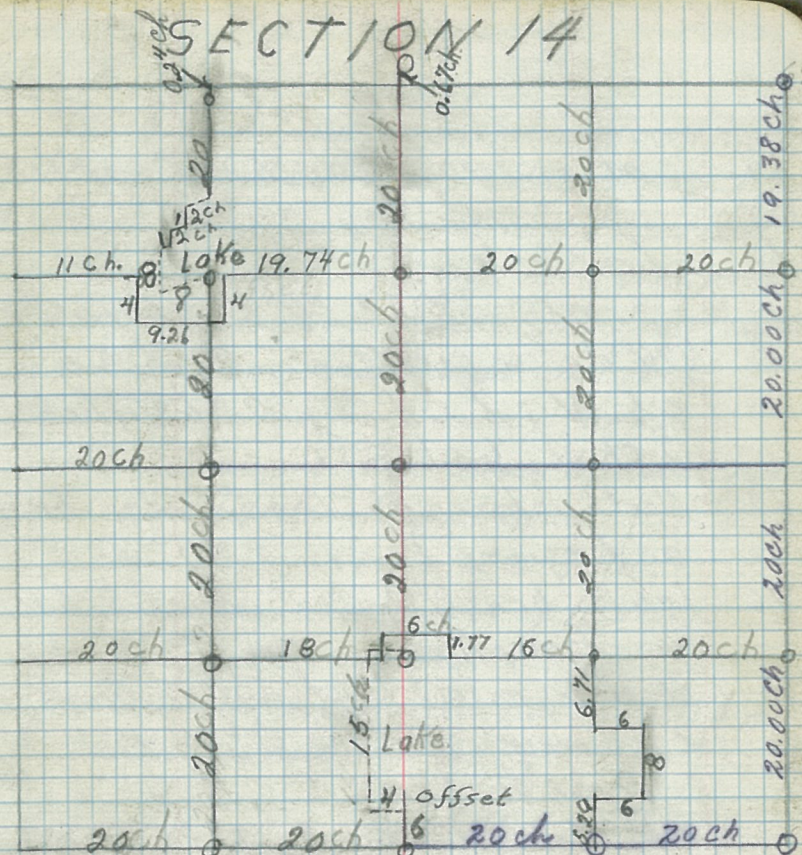 SECTION 14
0.24ch
0.67ch
20
20ch
20ch
19.38ch
1/2ch
1/2ch
11ch. 8 Lake 19.74ch 20ch 20ch
4 8 4
9.26
20
20ch
20ch
20.00ch
20ch
20ch
20ch
20ch
20ch
6ch
20ch 18ch 1.77 16ch 20ch
6.71
20ch
15ch
Lake
6
8
20.00ch
4 offset
6
6
20ch 20ch 20ch 20ch